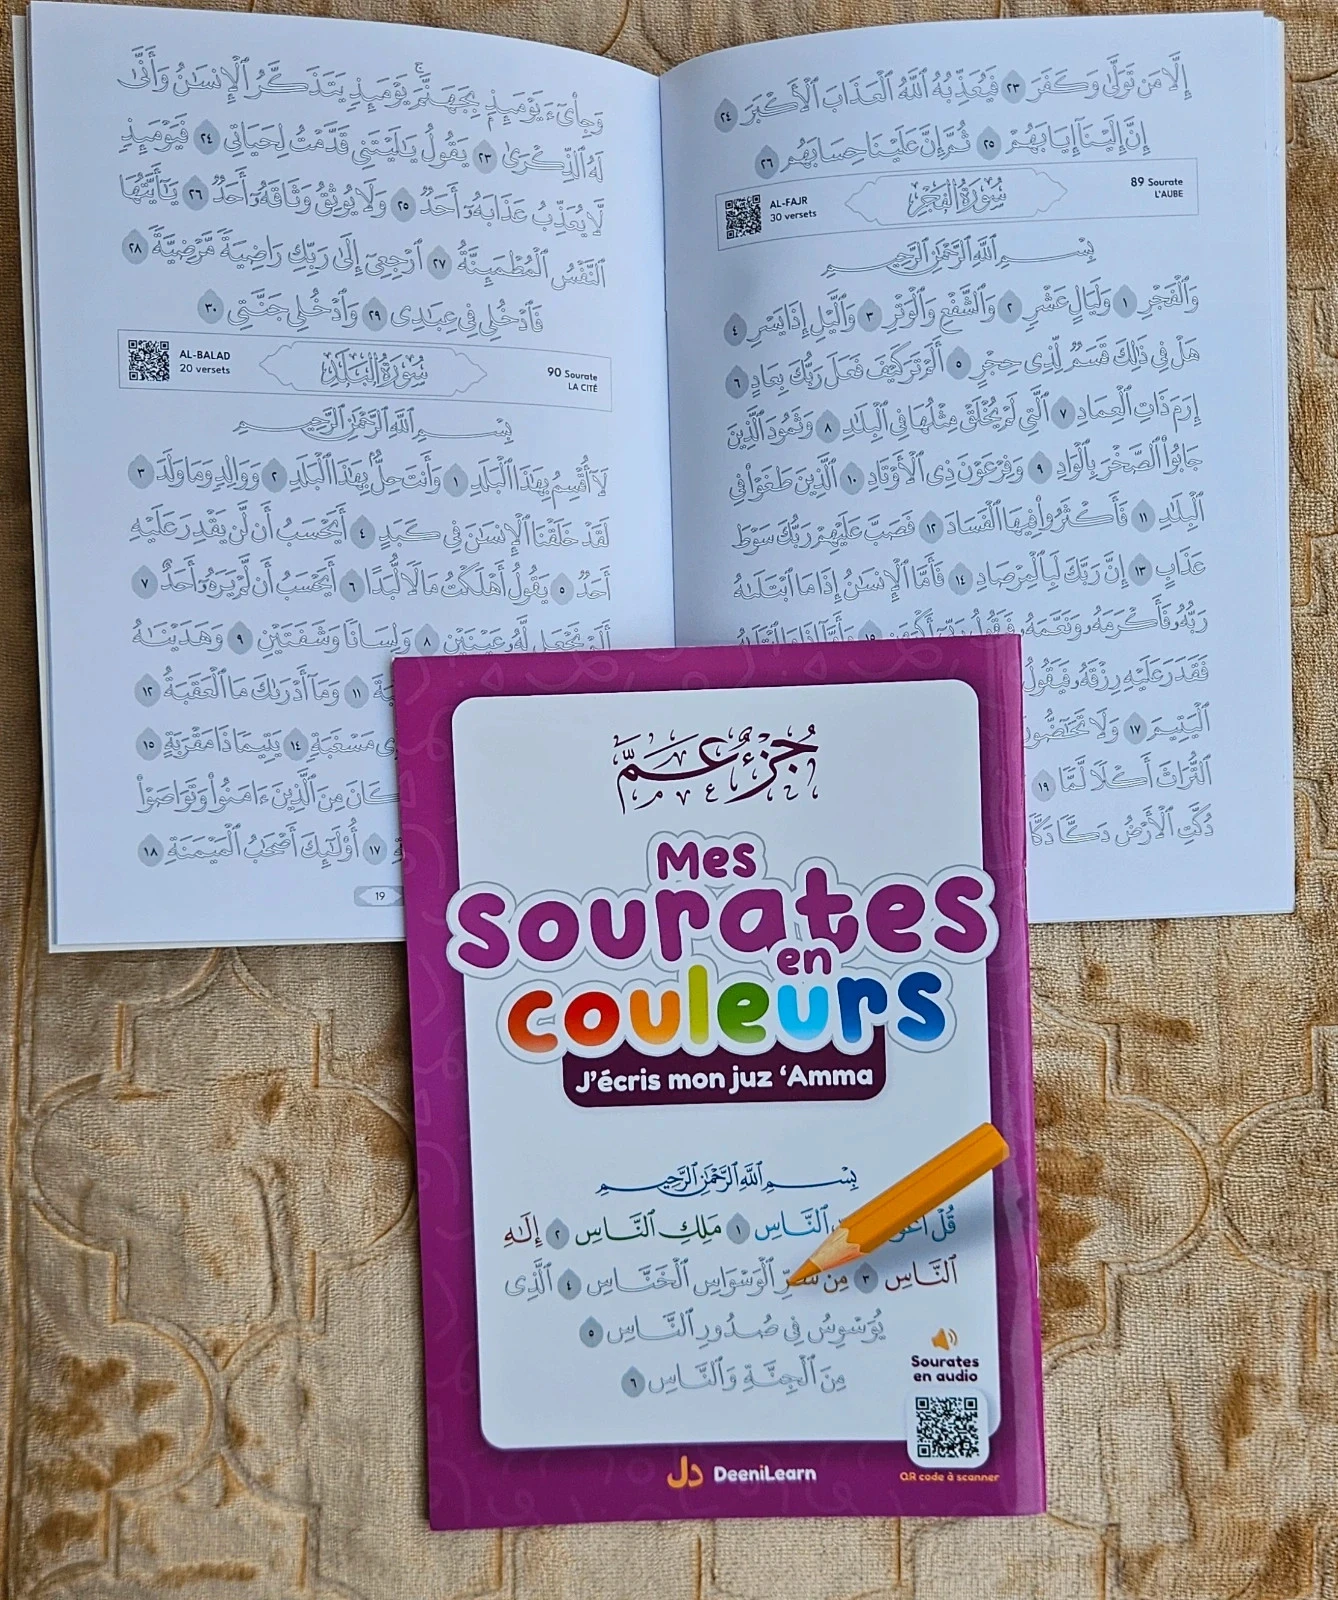 إِلَّا مَن تَوَلَّىٰ وَكَفَرَ ٢٣ فَيُعَذِّبُهُ ٱللَّهُ ٱلْعَذَابَ ٱلْأَكْبَرَ ٢٤
إِنَّ إِلَيْنَآ إِيَابَهُمْ ٢٥ ثُمَّ إِنَّ عَلَيْنَا حِسَابَهُم ٢٦
89 Sourate
L'AUBE
سُورَةُ الفَجْرِ
AL-FAJR
30 versets
بِسْمِ ٱللَّهِ ٱلرَّحْمَٰنِ ٱلرَّحِيمِ
وَٱلْفَجْرِ ١ وَلَيَالٍ عَشْرٍ ٢ وَٱلشَّفْعِ وَٱلْوَتْرِ ٣ وَٱلَّيْلِ إِذَا يَسْرِ ٤
هَلْ فِى ذَٰلِكَ قَسَمٌ لِّذِى حِجْرٍ ٥ أَلَمْ تَرَ كَيْفَ فَعَلَ رَبُّكَ بِعَادٍ ٦
إِرَمَ ذَاتِ ٱلْعِمَادِ ٧ ٱلَّتِى لَمْ يُخْلَقْ مِثْلُهَا فِى ٱلْبِلَٰدِ ٨ وَثَمُودَ ٱلَّذِينَ
جَابُوا۟ ٱلصَّخْرَ بِٱلْوَادِ ٩ وَفِرْعَوْنَ ذِى ٱلْأَوْتَادِ ١٠ ٱلَّذِينَ طَغَوْا۟ فِى
ٱلْبِلَٰدِ ١١ فَأَكْثَرُوا۟ فِيهَا ٱلْفَسَادَ ١٢ فَصَبَّ عَلَيْهِمْ رَبُّكَ سَوْطَ
عَذَابٍ ١٣ إِنَّ رَبَّكَ لَبِٱلْمِرْصَادِ ١٤ فَأَمَّا ٱلْإِنسَٰنُ إِذَا مَا ٱبْتَلَىٰهُ
رَبُّهُۥ فَأَكْرَمَهُۥ وَنَعَّمَهُۥ فَيَقُولُ رَبِّىٓ أَكْرَمَنِ ١٥ وَأَمَّآ إِذَا مَا ٱبْتَلَىٰهُ
فَقَدَرَ عَلَيْهِ رِزْقَهُۥ فَيَقُولُ
ٱلْيَتِيمَ ١٧ وَلَا تَحَٰٓضُّونَ
ٱلتُّرَاثَ أَكْلًا لَّمًّا ١٩
دُكَّتِ ٱلْأَرْضُ دَكًّا دَكًّا
وَجِا۟ىٓءَ يَوْمَئِذٍۭ بِجَهَنَّمَ يَوْمَئِذٍ يَتَذَكَّرُ ٱلْإِنسَٰنُ وَأَنَّىٰ
لَهُ ٱلذِّكْرَىٰ ٢٣ يَقُولُ يَٰلَيْتَنِى قَدَّمْتُ لِحَيَاتِى ٢٤ فَيَوْمَئِذٍ
لَّا يُعَذِّبُ عَذَابَهُۥٓ أَحَدٌ ٢٥ وَلَا يُوثِقُ وَثَاقَهُۥٓ أَحَدٌ ٢٦ يَٰٓأَيَّتُهَا
ٱلنَّفْسُ ٱلْمُطْمَئِنَّةُ ٢٧ ٱرْجِعِىٓ إِلَىٰ رَبِّكِ رَاضِيَةً مَّرْضِيَّةً ٢٨
فَٱدْخُلِى فِى عِبَٰدِى ٢٩ وَٱدْخُلِى جَنَّتِى ٣٠
90 Sourate
LA CITÉ
سُورَةُ البَلَدِ
AL-BALAD
20 versets
بِسْمِ ٱللَّهِ ٱلرَّحْمَٰنِ ٱلرَّحِيمِ
لَآ أُقْسِمُ بِهَٰذَا ٱلْبَلَدِ ١ وَأَنتَ حِلٌّۢ بِهَٰذَا ٱلْبَلَدِ ٢ وَوَالِدٍ وَمَا وَلَدَ ٣
لَقَدْ خَلَقْنَا ٱلْإِنسَٰنَ فِى كَبَدٍ ٤ أَيَحْسَبُ أَن لَّن يَقْدِرَ عَلَيْهِ
أَحَدٌ ٥ يَقُولُ أَهْلَكْتُ مَالًا لُّبَدًا ٦ أَيَحْسَبُ أَن لَّمْ يَرَهُۥٓ أَحَدٌ ٧
أَلَمْ نَجْعَل لَّهُۥ عَيْنَيْنِ ٨ وَلِسَانًا وَشَفَتَيْنِ ٩ وَهَدَيْنَٰهُ
١١ وَمَآ أَدْرَىٰكَ مَا ٱلْعَقَبَةُ ١٢
مَسْغَبَةٍ ١٤ يَتِيمًا ذَا مَقْرَبَةٍ ١٥
كَانَ مِنَ ٱلَّذِينَ ءَامَنُوا۟ وَتَوَاصَوْا۟
١٧ أُو۟لَٰٓئِكَ أَصْحَٰبُ ٱلْمَيْمَنَةِ ١٨
19
جُزْءُ عَمَّ
Mes
sourates
en
couleurs
J'écris mon juz ‘Amma
بِسْمِ ٱللَّهِ ٱلرَّحْمَٰنِ ٱلرَّحِيمِ
قُلْ ٱلنَّاسِ ١ مَلِكِ ٱلنَّاسِ ٢ إِلَٰهِ
ٱلنَّاسِ ٣ مِن شَرِّ ٱلْوَسْوَاسِ ٱلْخَنَّاسِ ٤ ٱلَّذِى
يُوَسْوِسُ فِى صُدُورِ ٱلنَّاسِ ٥
مِنَ ٱلْجِنَّةِ وَٱلنَّاسِ ٦
Sourates
en audio
QR code à scanner
دل DeeniLearn